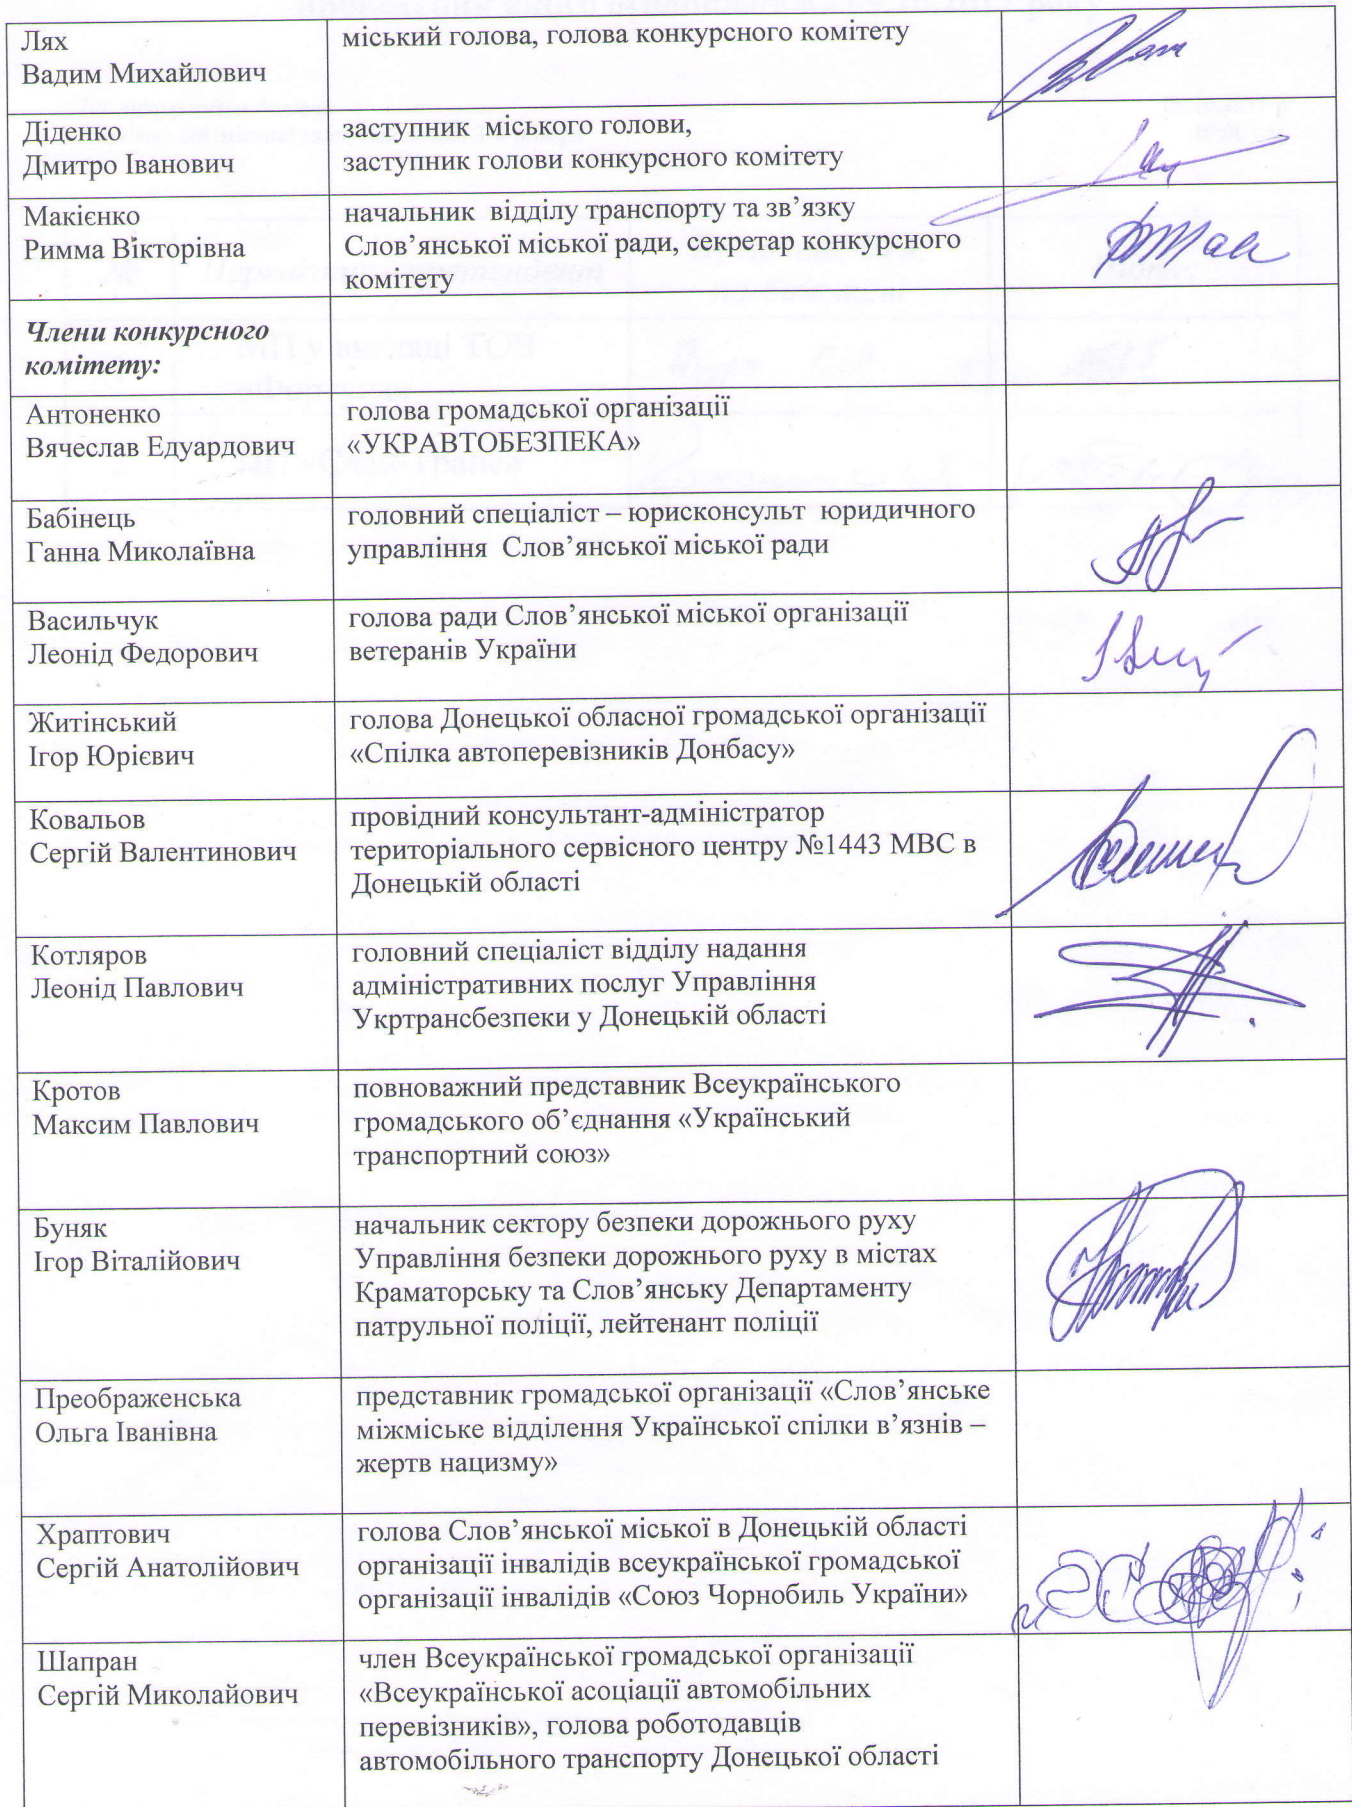 Лях
Вадим Михайлович
міський голова, голова конкурсного комітету
Діденко
Дмитро Іванович
заступник міського голови,
заступник голови конкурсного комітету
Макієнко
Римма Вікторівна
начальник відділу транспорту та зв’язку
Слов’янської міської ради, секретар конкурсного
комітету
Члени конкурсного
комітету:
Антоненко
Вячеслав Едуардович
голова громадської організації
«УКРАВТОБЕЗПЕКА»
Бабінець
Ганна Миколаївна
головний спеціаліст – юрисконсульт юридичного
управління Слов’янської міської ради
Васильчук
Леонід Федорович
голова ради Слов’янської міської організації
ветеранів України
Житінський
Ігор Юрієвич
голова Донецької обласної громадської організації
«Спілка автоперевізників Донбасу»
Ковальов
Сергій Валентинович
провідний консультант-адміністратор
територіального сервісного центру №1443 МВС в
Донецькій області
Котляров
Леонід Павлович
головний спеціаліст відділу надання
адміністративних послуг Управління
Укртрансбезпеки у Донецькій області
Кротов
Максим Павлович
повноважний представник Всеукраїнського
громадського об’єднання «Український
транспортний союз»
Буняк
Ігор Віталійович
начальник сектору безпеки дорожнього руху
Управління безпеки дорожнього руху в містах
Краматорську та Слов’янську Департаменту
патрульної поліції, лейтенант поліції
Преображенська
Ольга Іванівна
представник громадської організації «Слов’янське
міжміське відділення Української спілки в’язнів –
жертв нацизму»
Храптович
Сергій Анатолійович
голова Слов’янської міської в Донецькій області
організації інвалідів всеукраїнської громадської
організації інвалідів «Союз Чорнобиль України»
Шапран
Сергій Миколайович
член Всеукраїнської громадської організації
«Всеукраїнської асоціації автомобільних
перевізників», голова роботодавців
автомобільного транспорту Донецької області